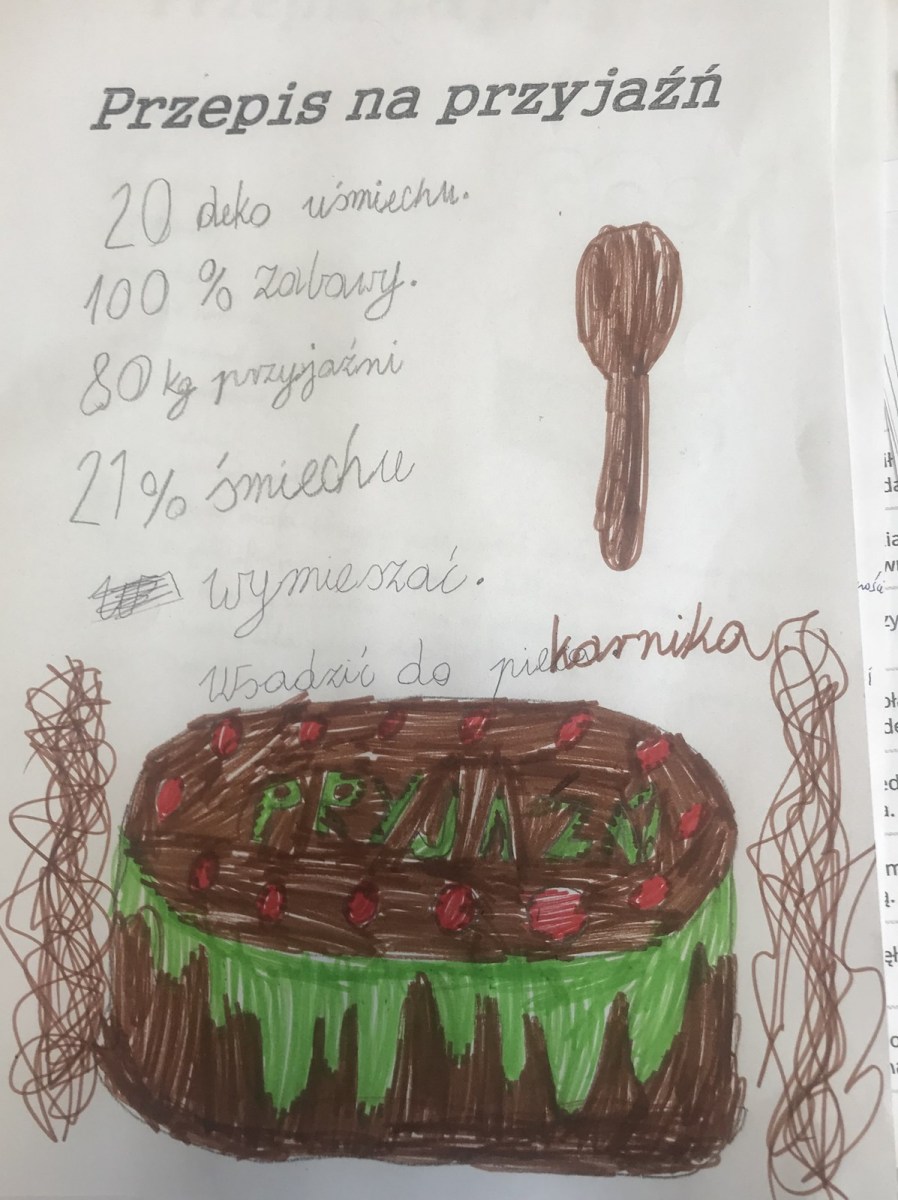 Przepis na przyjaźń
20 deko uśmiechu.
100 % zabawy.
80 kg przyjaźni
21% śmiechu
wymieszać.
Wsadzić do piekarnika
PRYJAZŃ